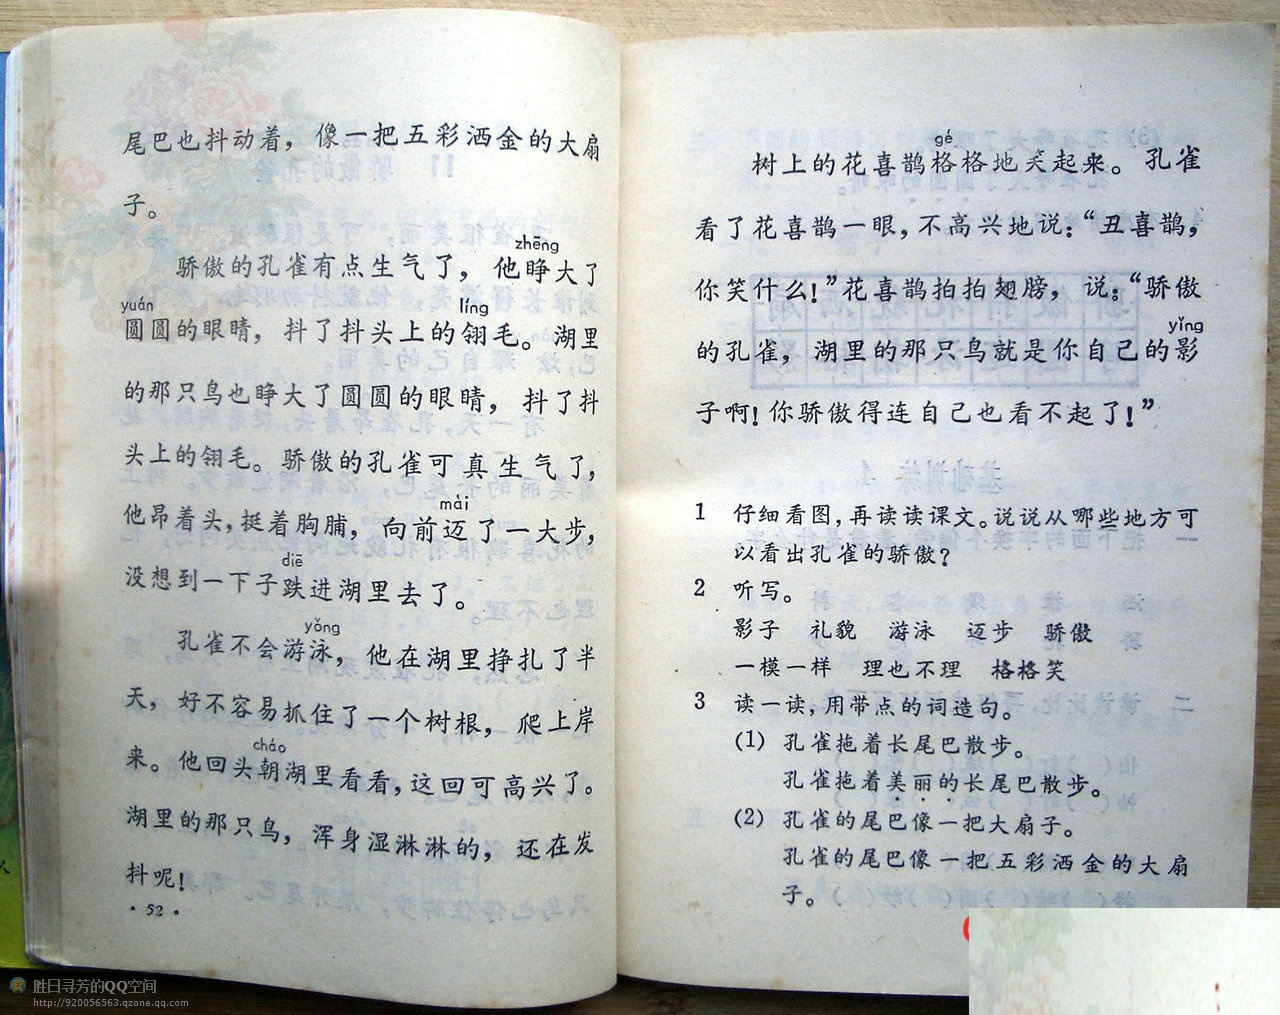 尾巴也抖动着，像一把五彩洒金的大扇
子。
zhēng
骄傲的孔雀有点生气了，他睁大了
yuán líng
圆圆的眼睛，抖了抖头上的翎毛。湖里
的那只鸟也睁大了圆圆的眼睛，抖了抖
头上的翎毛。骄傲的孔雀可真生气了，
mài
他昂着头，挺着胸脯，向前迈了一大步，
diē
没想到一下子跌进湖里去了。
yǒng
孔雀不会游泳，他在湖里挣扎了半
天，好不容易抓住了一个树根，爬上岸
cháo
来。他回头朝湖里看看，这回可高兴了。
湖里的那只鸟，浑身湿淋淋的，还在发
抖呢！
·52·
gé
树上的花喜鹊格格地笑起来。孔雀
看了花喜鹊一眼，不高兴地说：“丑喜鹊，
你笑什么！”花喜鹊拍拍翅膀，说：“骄傲
yǐng
的孔雀，湖里的那只鸟就是你自己的影
子啊！你骄傲得连自己也看不起了！”
1 仔细看图，再读读课文。说说从哪些地方可
以看出孔雀的骄傲？
2 听写。
影子 礼貌 游泳 迈步 骄傲
一模一样 理也不理 格格笑
3 读一读，用带点的词造句。
(1) 孔雀拖着长尾巴散步。
孔雀拖着美丽的长尾巴散步。
(2) 孔雀的尾巴像一把大扇子。
孔雀的尾巴像一把五彩洒金的大扇
子。
胜日寻芳的QQ空间
http://920056563.qzone.qq.com